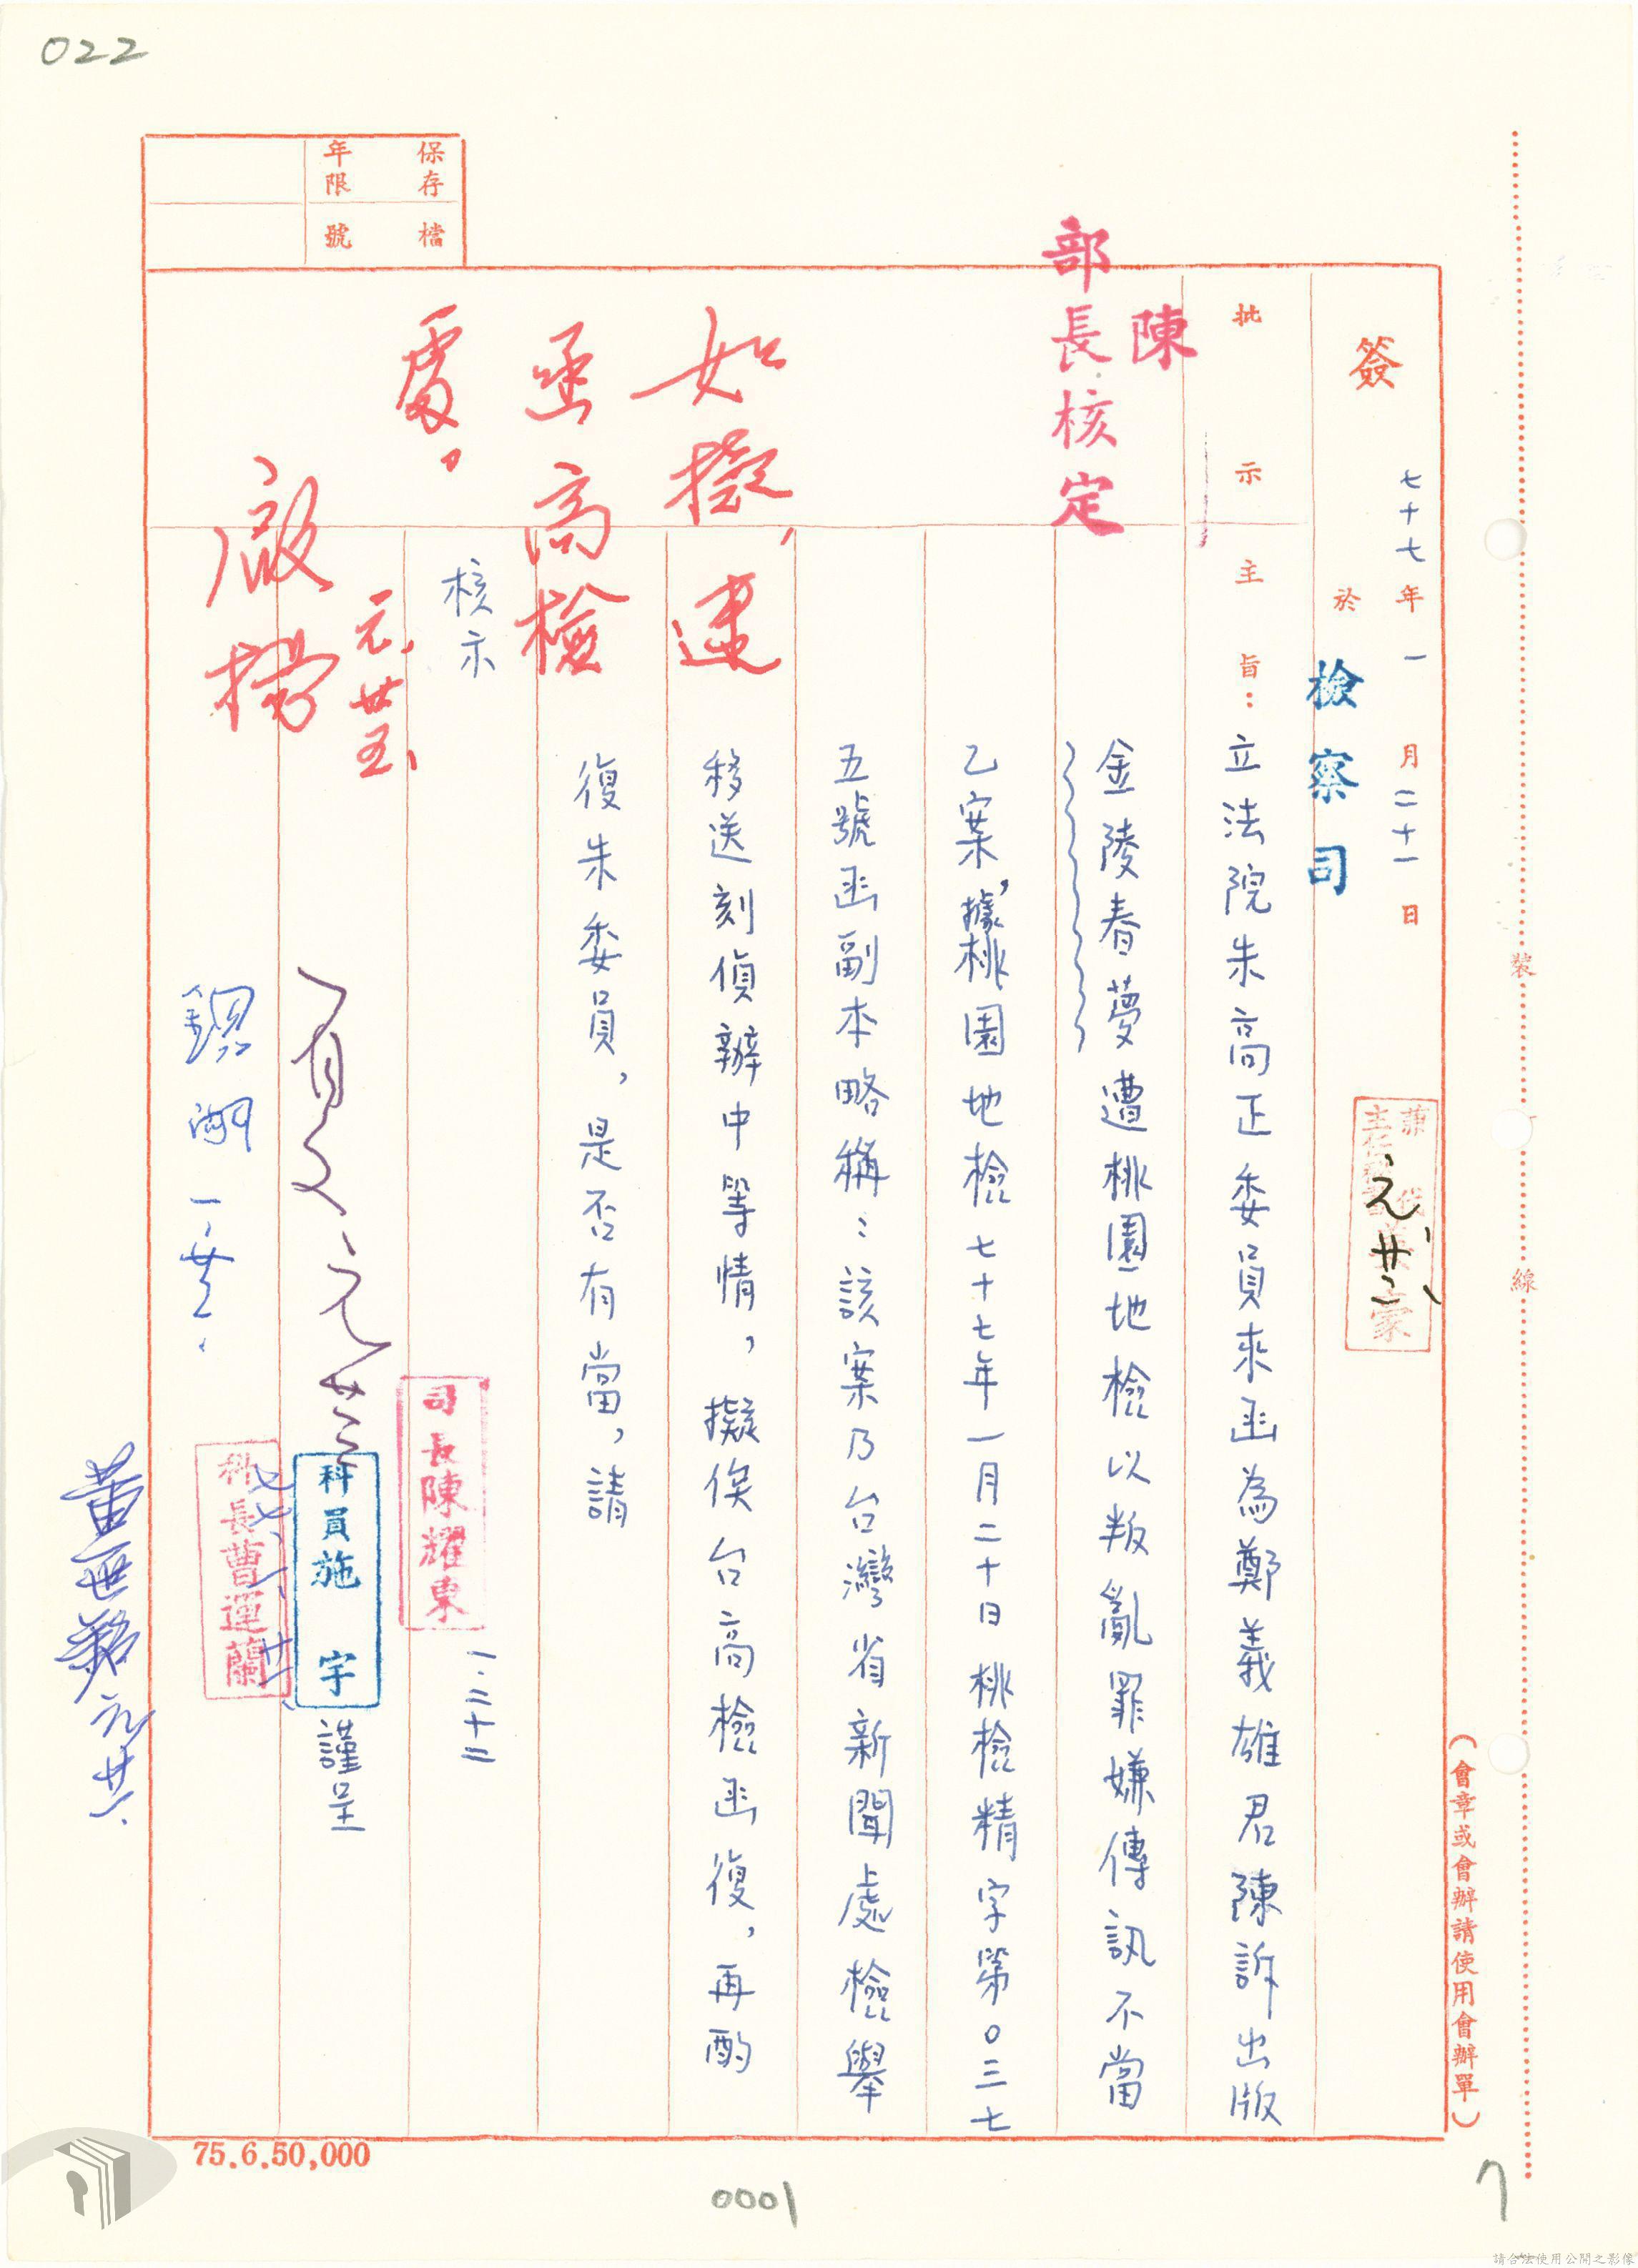 022
保存年限
檔號
簽
七十七年一月二十一日
於檢察司
批示
陳
部長核定
如擬,速
函高檢
處。
元、廿五、
主旨:立法院朱高正委員來函為鄭義雄君陳訴出版
金陵春夢遭桃園地檢以叛亂罪嫌傳訊不當
乙案,據桃園地檢七十七年一月二十日桃檢精字第0三七
五號函副本略稱:該案乃台灣省新聞處檢舉
移送刻偵辦中等情,擬俟台高檢函復,再酌
復朱委員,是否有當,請
核示
司長陳耀東
一.二十二
科員施宇
謹呈
科長曹運蘭
七七、一、廿一、
元廿二、
裝
訂
線
(會章或會辦請使用會辦單)
75.6.50,000
0001
7
請合法使用公開之影像